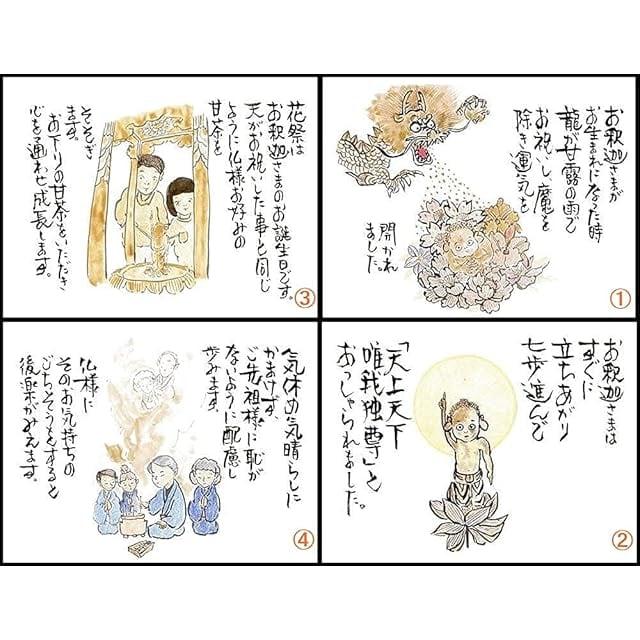 お釈迦さまが
お生まれになった時
龍が甘露の雨で
お祝いし、魔を
除き運気を
開かれ
ました。
①
お釈迦さまは
すぐに
立ちあがり
七歩進んで
「天上天下
唯我独尊」と
おっしゃられました。
②
花祭は
お釈迦さまのお誕生日です。
天がお祝いした事と同じ
ように仏様お好みの
甘茶を
そそぎ
ます。
お下りの甘茶をいただき
心を通わせ成長します。
③
気休め気晴らしに
かまけず、
ご先祖様に恥が
ないように配慮し
歩みます。
仏様に
そのお気持ちの
ごちそうをすると
後楽がみえます。
④